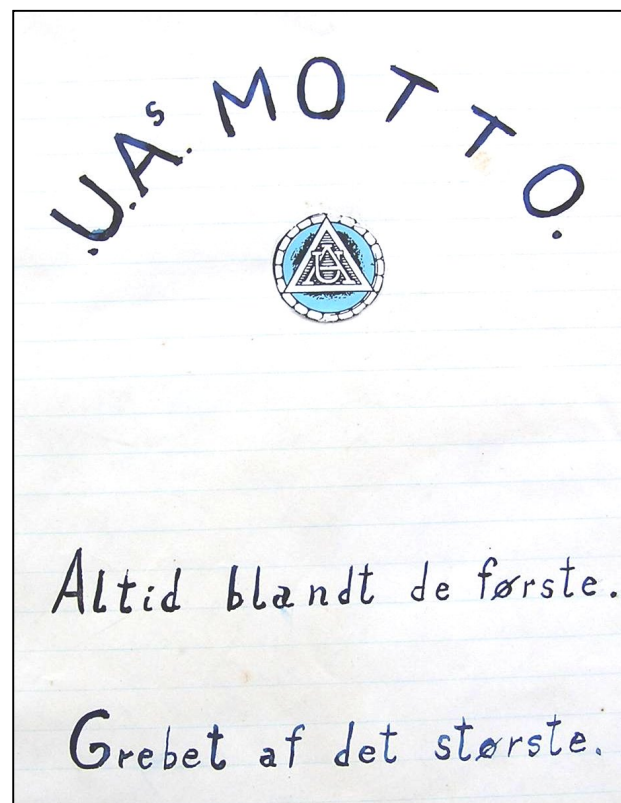 .U.A.s MOTTO.
UA
Altid blandt de første.
Grebet af det største.